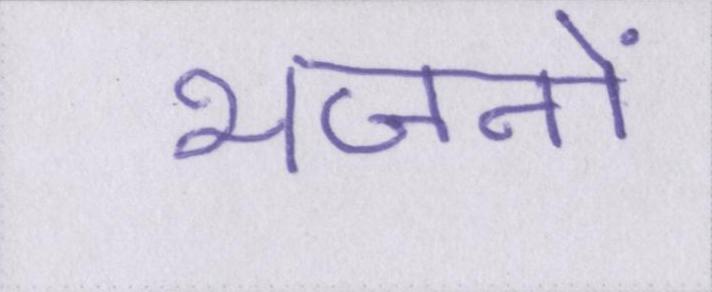 भजनों